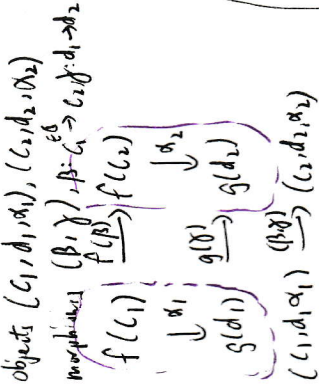 objects (c₁, d₁, α₁), (c₂, d₂, α₂)
morphisms (β, γ), β: c₁ → c₂, γ: d₁ → d₂
f(c₁) f(β) → f(c₂)
↓ α₁ ↓ α₂
g(d₁) g(γ) → g(d₂)
(c₁, d₁, α₁) (β, γ) → (c₂, d₂, α₂)